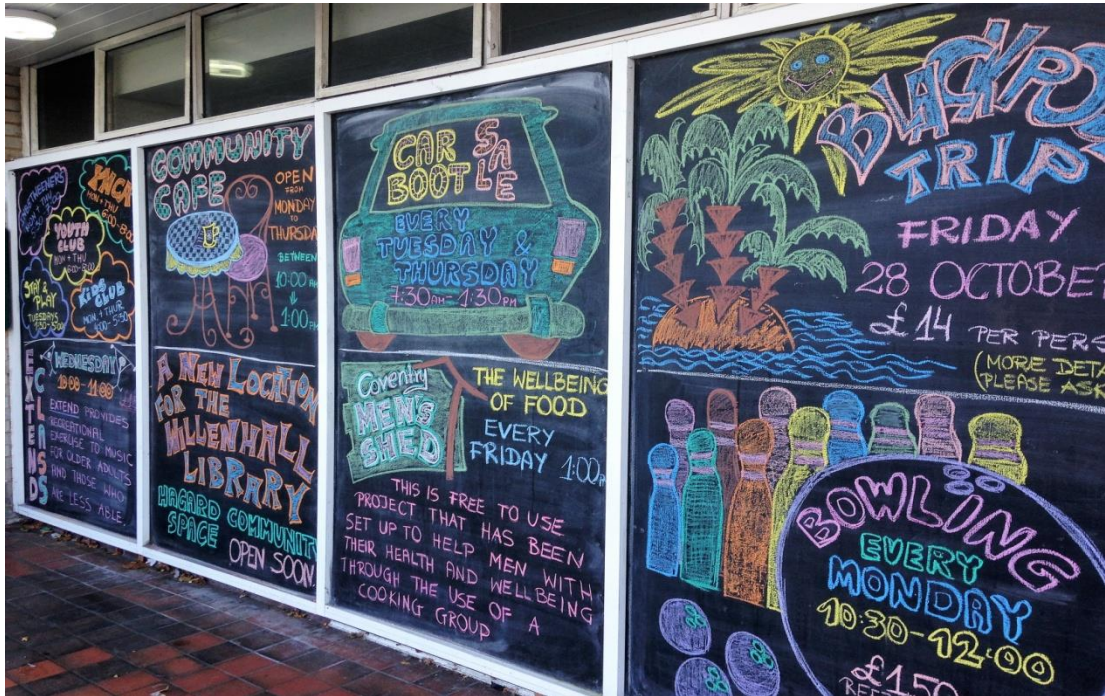 TWEENERS
MON + THU
6:00-8:00
YOUTH
CLUB
MON + THU
6:00-8:00
STAY &
PLAY
TUESDAYS
1:30-5:00
KIDS
CLUB
MON + THUR
4:00-5:30
EXTEND
CLASS
WEDNESDAY
10:00-11:00
EXTEND PROVIDES
RECREATIONAL
EXERCISE TO MUSIC
FOR OLDER ADULTS
AND THOSE WHO
ARE LESS ABLE.
COMMUNITY
CAFE
OPEN
FROM
MONDAY
TO
THURSDAY
BETWEEN
10:00 AM
1:00 PM
A NEW LOCATION
FOR THE
WILLENHALL
LIBRARY
HAGARD COMMUNITY
SPACE
OPEN SOON.
CAR
BOOT
SALE
EVERY
TUESDAY &
THURSDAY
7:30AM-1:30PM
Coventry
MEN'S
SHED
THE WELLBEING
OF FOOD
EVERY
FRIDAY 1:00P
THIS IS FREE TO USE
PROJECT THAT HAS BEEN
SET UP TO HELP MEN WITH
THEIR HEALTH AND WELLBEING
THROUGH THE USE OF A
COOKING GROUP
BLACKPOOL
TRIP
FRIDAY
28 OCTOBER
£14 PER PERS
(MORE DETA
PLEASE ASK
BOWLING
EVERY
MONDAY
10:30-12:00
£1.50
PER